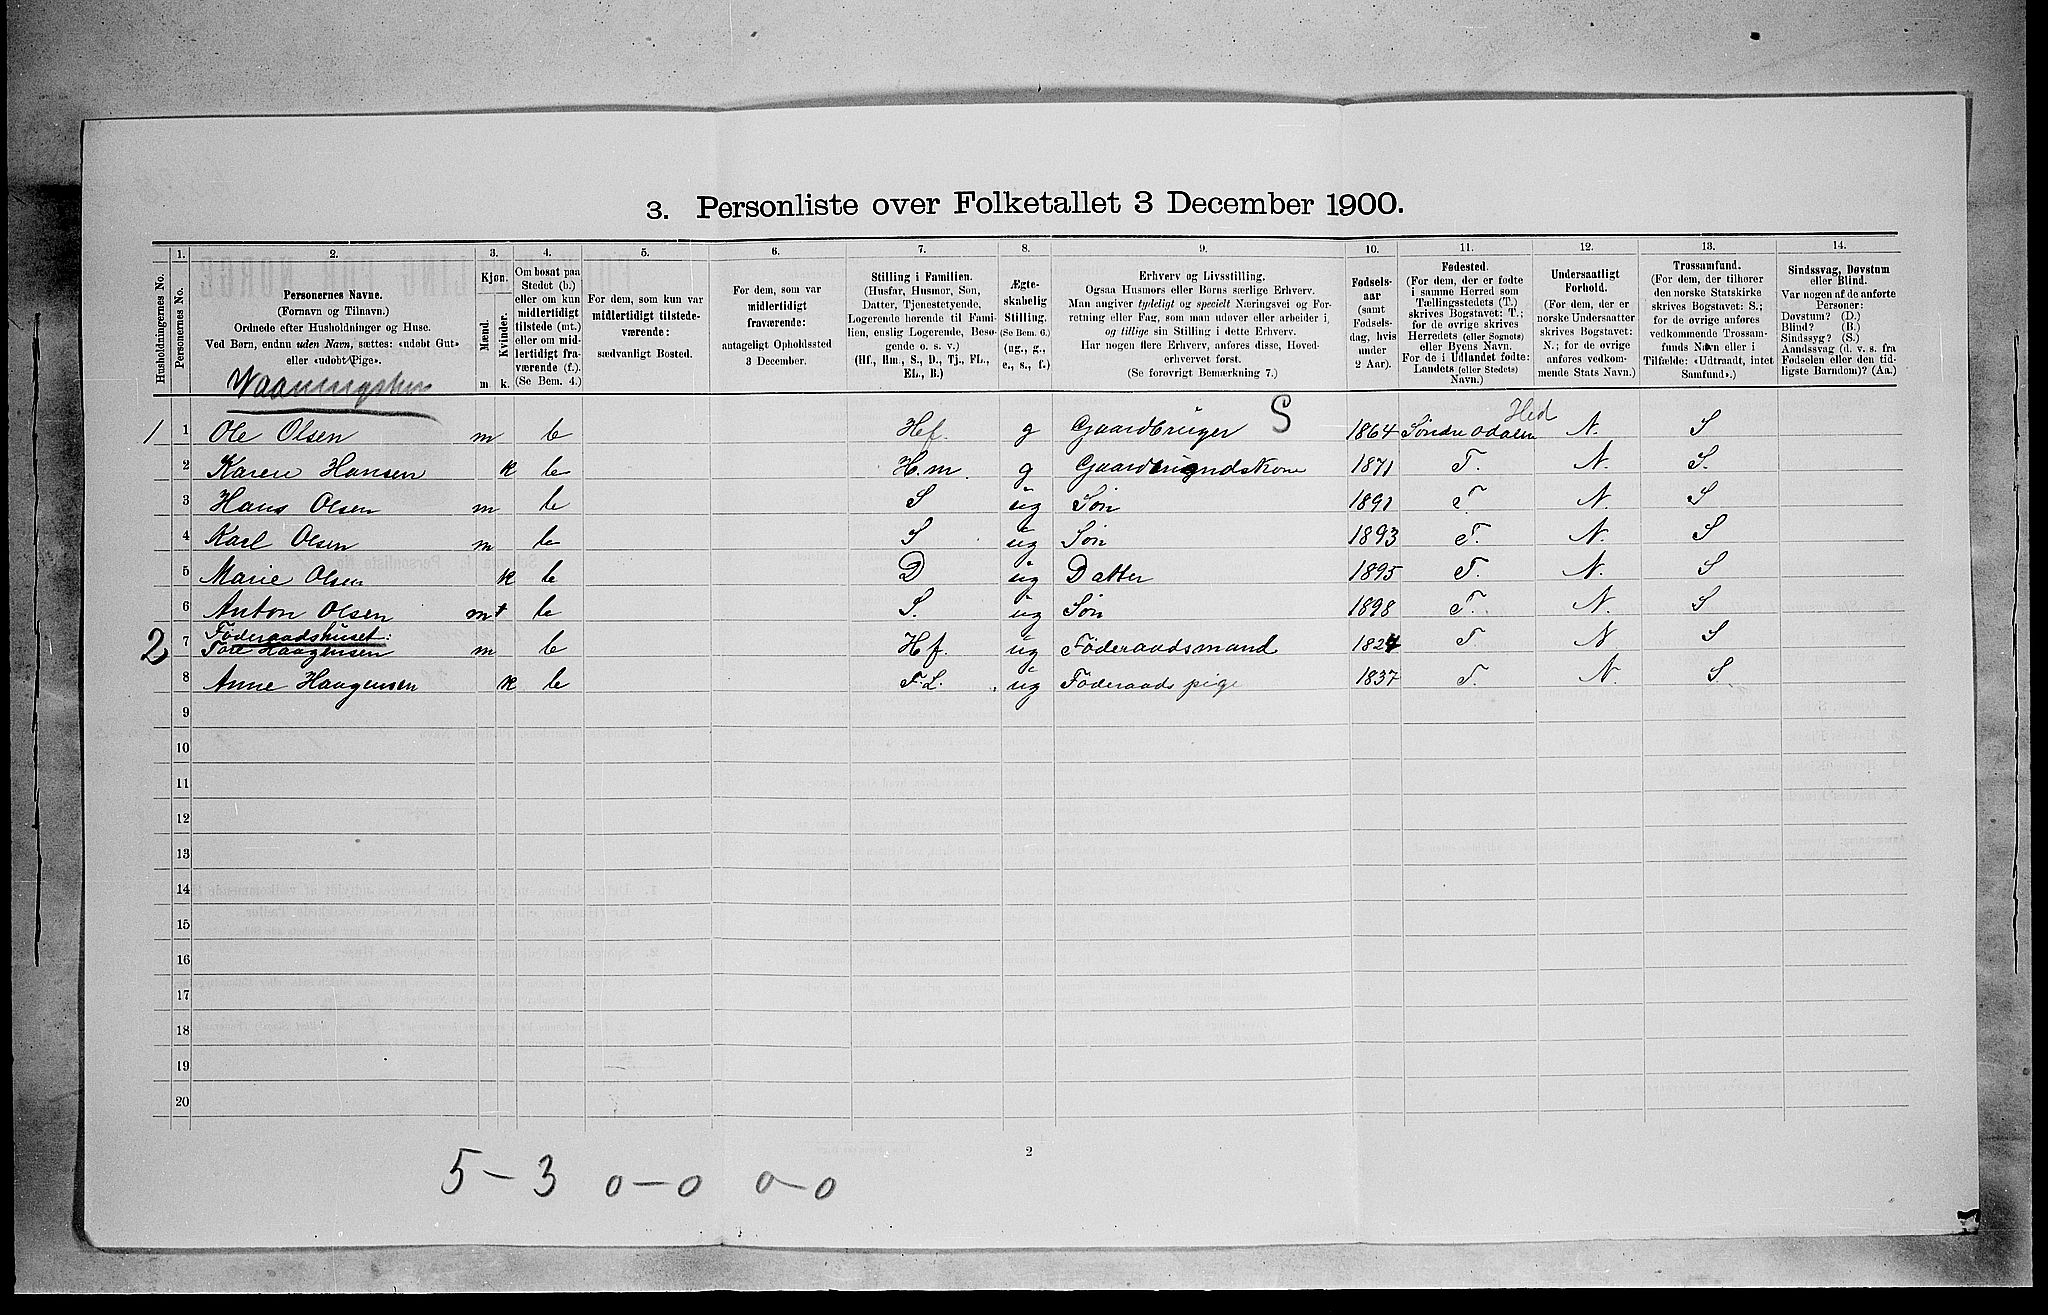 3. Personliste over Folketallet 3 December 1900.
Husholdningernes No.
1. Personernes No.
2. Personernes Navne. (Fornavn og Tilnavn.) Ordnede efter Husholdninger og Huse. Ved Børn, endnu uden Navn, sættes: «udøbt Gut» eller «udøbt Pige».
3. Kjøn. Mænd. m Kvinder. k.
4. Om bosat paa Stedet (b.) eller om kun midlertidigt tilstede (mt.) eller om midlertidigt fraværende (f.). (Se Bem. 4.)
5. For dem, som kun var midlertidigt tilstedeværende: sædvanligt Bosted.
6. For dem, som var midlertidigt fraværende: antageligt Opholdssted 3 December.
7. Stilling i Familien. (Husfar, Husmor, Søn, Datter, Tjenestetyende, Logerende hørende til Familien, enslig Logerende, Besøgende o. s. v.) (Hf., Hm., S., D., Tj., FL., EL., B.)
8. Ægteskabelig Stilling. (Se Bem. 6.) (ug., g., e., s., f.)
9. Erhverv og Livsstilling. Ogsaa Husmors eller Børns særlige Erhverv. Man angiver tydeligt og specielt Næringsvei og Forretning eller Fag, som man udøver eller arbeider i, og tillige sin Stilling i dette Erhverv. Har nogen flere Erhverv, anføres disse, Hovederhvervet først. (Se forøvrigt Bemærkning 7.)
10. Fødselsaar (samt Fødselsdag, hvis under 2 Aar).
11. Fødested. (For dem, der er fødte i samme Herred som Tællingsstedets (T.) skrives Bogstavet: T.; for de øvrige skrives Herredets (eller Sognets) eller Byens Navn. For de i Udlandet fødte: Landets (eller Stedets) Navn.)
12. Undersaatligt Forhold. (For dem, der er norske Undersaatter skrives Bogstavet: N.; for de øvrige anføres vedkommende Stats Navn.)
13. Trossamfund. (For dem, der tilhører den norske Statskirke skrives Bogstavet: S.; for de øvrige anføres vedkommende Trossamfunds Navn eller i Tilfælde: «Udtraadt, intet Samfund».)
14. Sindssvag, Døvstum eller Blind. Var nogen af de anførte Personer: Døvstum? (D.) Blind? (B.) Sindssyg? (S.) Aandssvag (d. v. s. fra Fødselen eller den tidligste Barndom)? (Aa.)
Vaaningshus
1 1 Ole Olsen m b Hf. g Gaardbruger S 1864 Søndre Odalen Hed N. S
2 Karen Hansen k b Hm. g Gaardmandskone 1871 T. N. S.
3 Hans Olsen m b S ug Søn 1891 T. N. S
4 Karl Olsen m b S ug Søn 1893 T. N. S
5 Marie Olsen k b D ug Datter 1895 T. N. S
6 Anton Olsen m b S. ug Søn 1898 T. N. S
Föderaadshuset:
2 7 Tore Haagensen m b Hf. ug Föderaadsmand 1824 T. N S
8 Anne Haagensen k b F.L. ug Föderaads pige 1837 T. N. S.
9
10
11
12
13
14
15
16
17
18
19
20
2
5-3 0-0 0-0